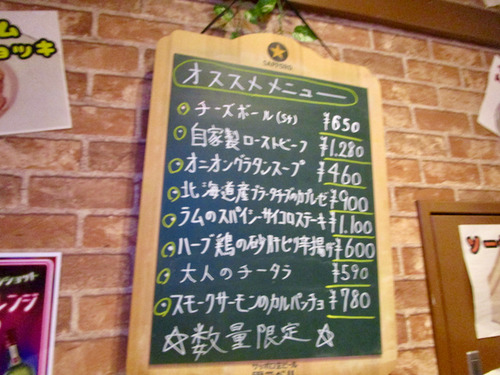 ム
ョッキ
SAPPORO
オススメメニュー
チーズボール(5ヶ) ¥650
自家製ローストビーフ ¥1.280
オニオングラタンスープ ¥460
北海道産ブラータチーズのカプレーゼ ¥900
ラムのスパイシーサイコロステーキ ¥1.100
ハーブ鶏の砂肝ピリ辛揚げ ¥600
大人のチータラ ¥590
スモークサーモンのカルパッチョ ¥780
☆数量限定☆
サッポロ生ビール
レンジ
ソー